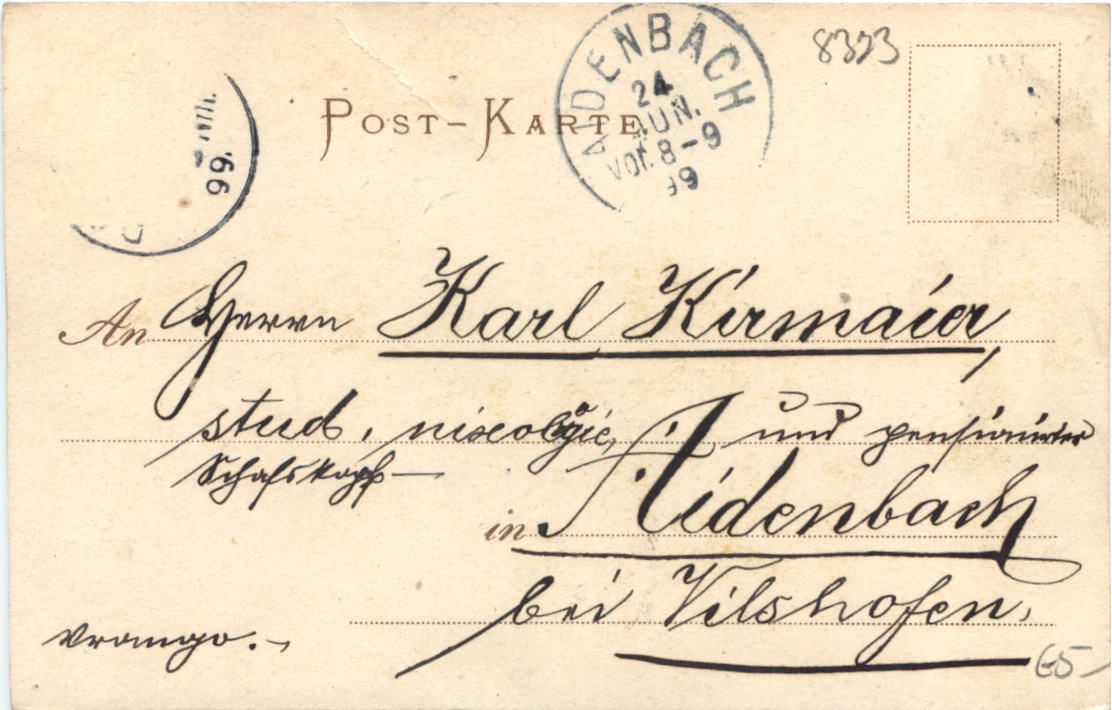 8323
POST-KARTE
AIDENBACH
24
JUN.
Vor. 8-9
99
VIII.
99.
An Herrn Karl Kirmaier,
stud. nixologie, und pensionirter
Schafskopf —
in Aidenbach
bei Vilshofen.
65